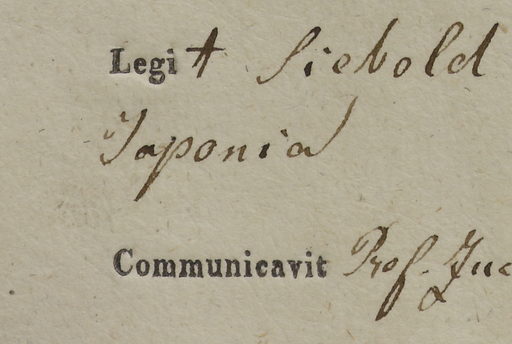 Legit Siebold
Japonia
Communicavit Prof.